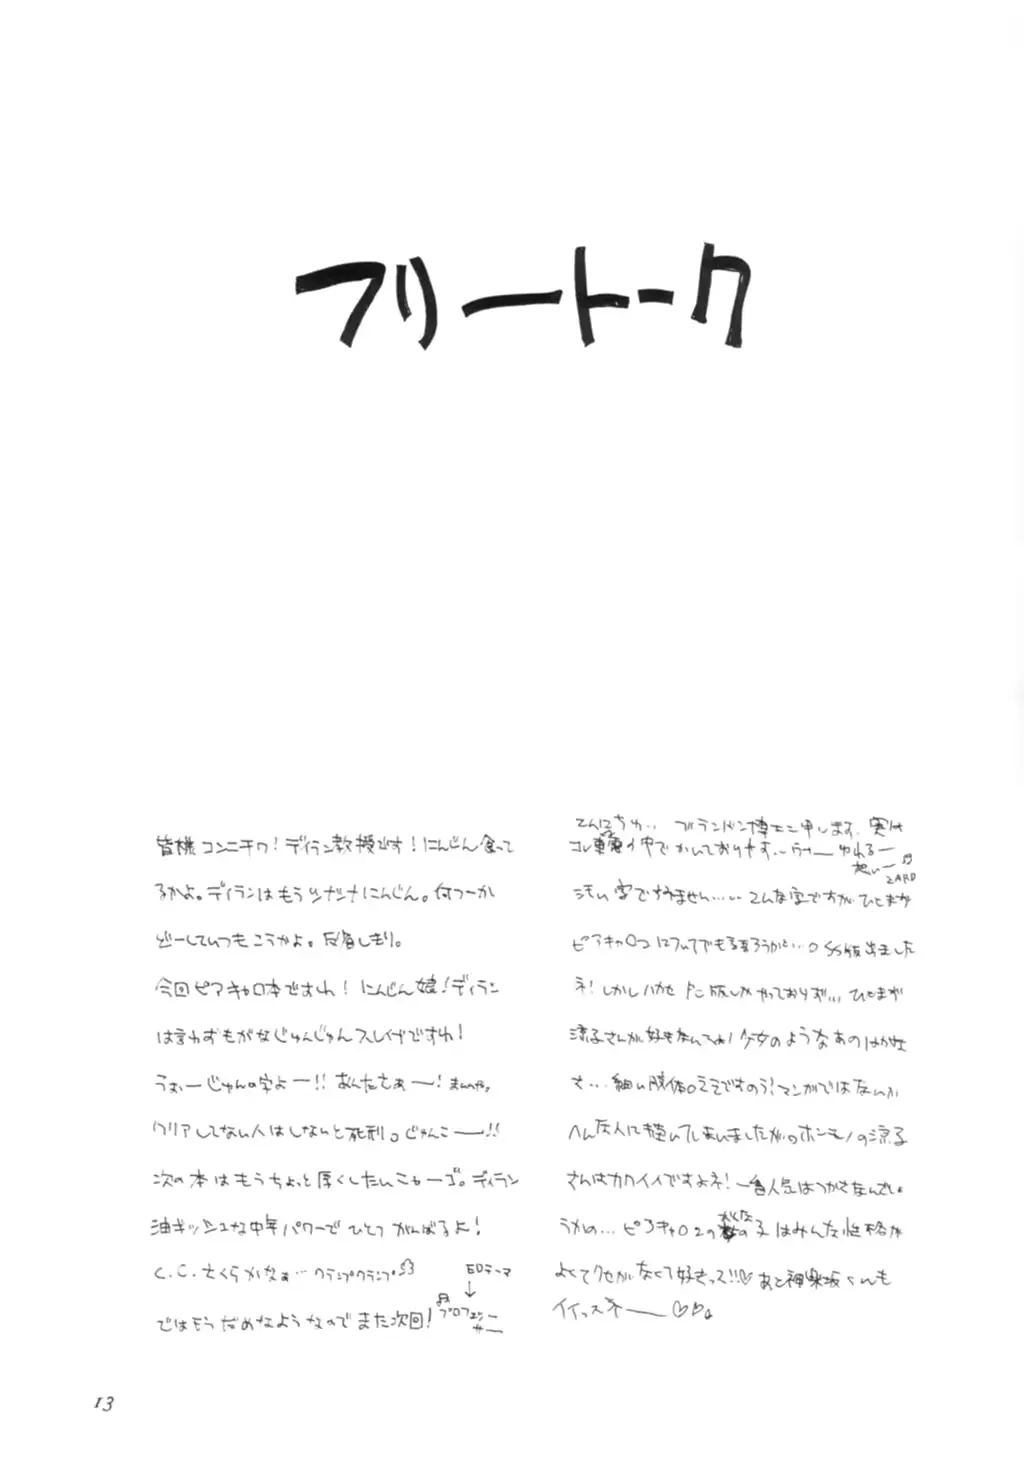 フリートーク
皆様コンニチワ!ディラン教授です!にんじん食って
るかよ。ディランはもうリナンナにんじん。何つーか
どーしていつもこうかよ。反省しきり。
今回ピアキャロ本ですわ!にんじん娘!ディラン
は言わずもがなじゅんじゅんスレイブですわ!
うぉーじゅんの字よー!!あんたさぁー!まいいや。
クリアしてない人はしないと死刑。じゅんこー!!
次の本はもうちょっと厚くしたいニャーゴ。ディラン
油ギッシュな中年パワーでひとつがんばるよ!
C.C.さくらかなぁ…クランプクランプ
EDテーマ
↓
ではもうだめなようなのでまた次回!
♬プロフェッサー
こんにちわ..ブランドン博士と申します。実は
コレ車の中でかいております..うわーゆれるー
想いー♬
ZARD
汚い字ですみません……こんな字ですがひとまず
ピアキャロ2についてでも語ろうかと…。SS版出ました
ネ!しかしハカセドコ版しかやっておりず…ひとまず
涼子さんが好きなんでね!少女のようなあのはかな
さ…細い肢体。ええですのう!マンガではないか
へんな人に描いてしまいましたが。ホンモノの涼子
さんはカワイイですよネ!一番人気はつかさなんでしょ
うかの…ピアキャロ2の女の子はみんな性格が
よくてクセがなくて好きっス!!♡あと神楽坂くんも
イイっスネー♡♡。
13